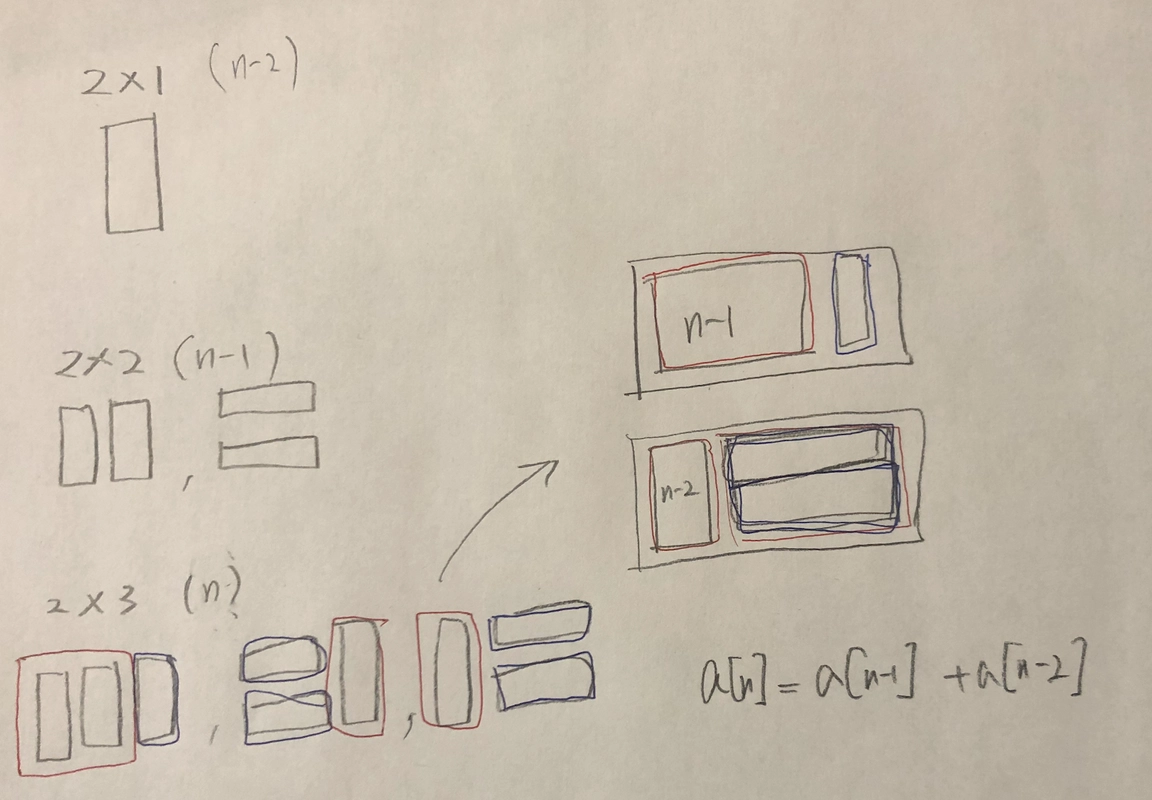 2×1 (n-2)
2×2 (n-1)
,
2×3 (n)
, ,
n-1
n-2
a[n] = a[n-1] + a[n-2]